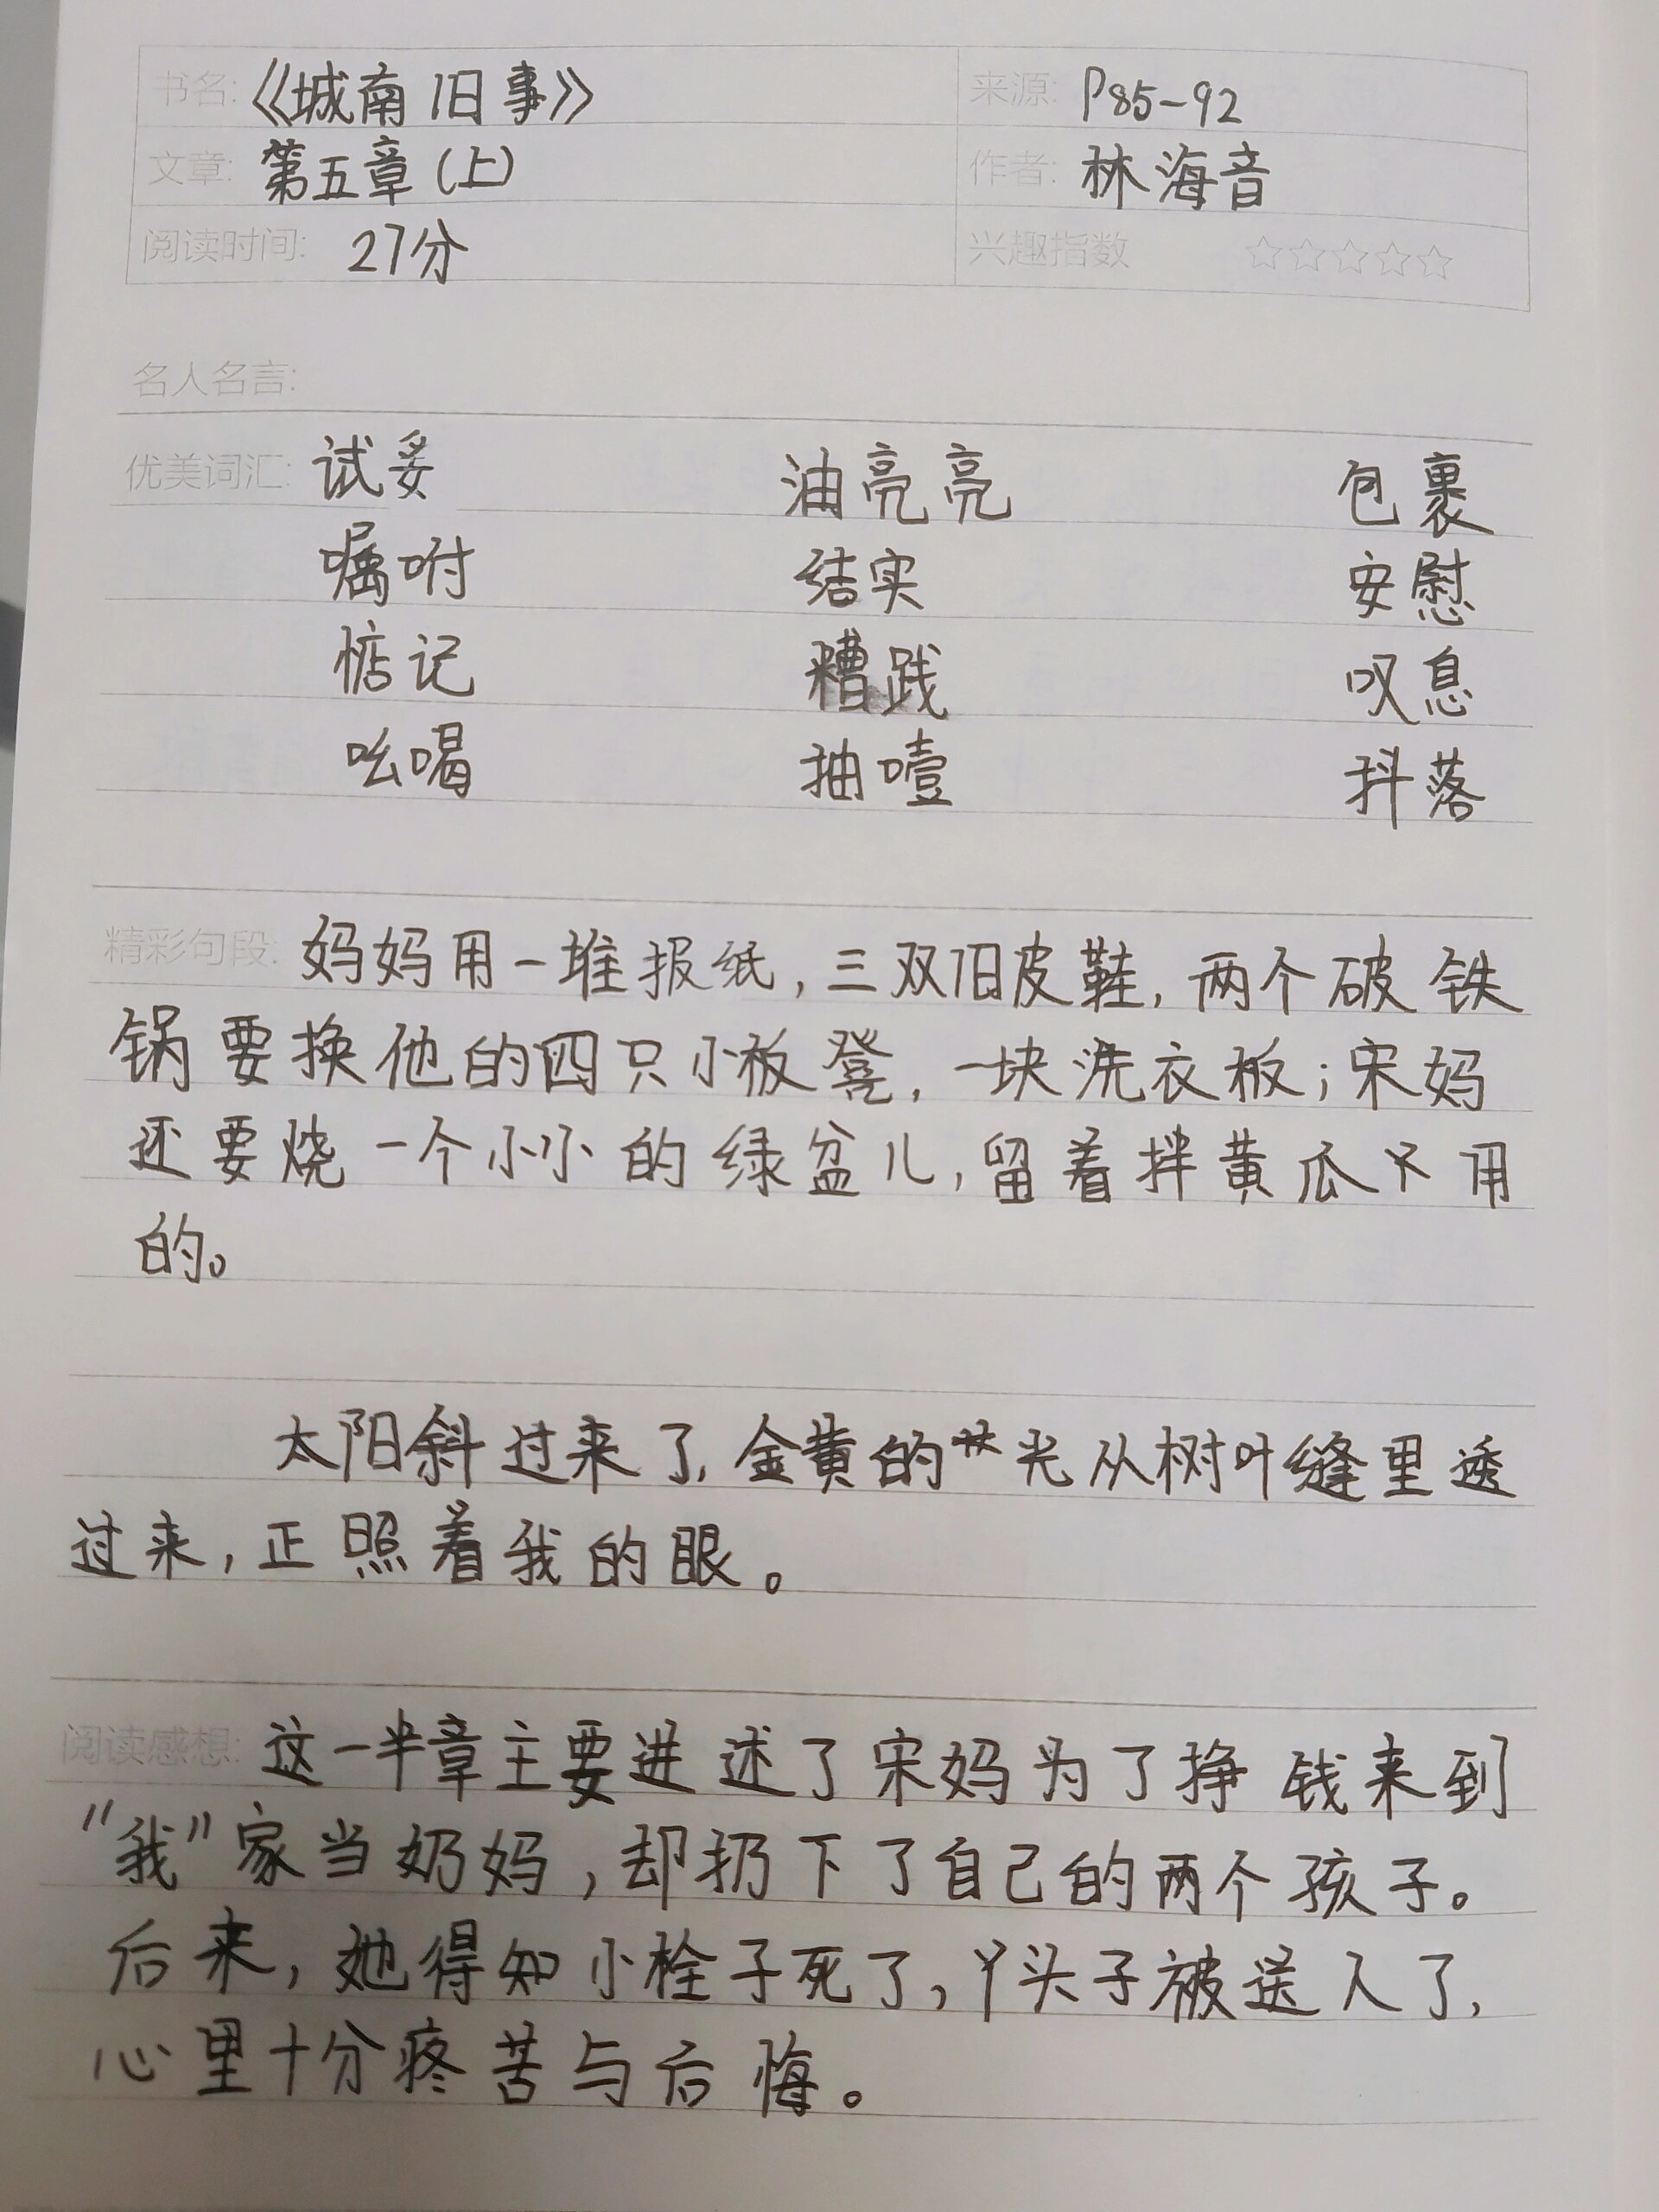 书名:《城南旧事》 来源: P85-92
文章: 第五章(上) 作者: 林海音
阅读时间: 27分 兴趣指数 ☆☆☆☆☆
名人名言:
优美词汇: 试妥 油亮亮 包裹
嘱咐 结实 安慰
惦记 糟践 叹息
吆喝 抽噎 抖落
精彩句段: 妈妈用一堆报纸,三双旧皮鞋,两个破铁
锅要换他的四只小板凳,一块洗衣板;宋妈
还要烧一个小小的绿盆儿,留着拌黄瓜下用
的。
太阳斜过来了,金黄的光从树叶缝里透
过来,正照着我的眼。
阅读感想: 这一半章主要进述了宋妈为了挣钱来到
“我”家当奶妈,却扔下了自己的两个孩子。
后来,她得知小栓子死了,丫头子被送人了,
心里十分疼苦与后悔。